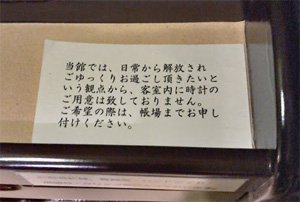 当館では、日常から解放され
ごゆっくりお過ごし頂きたいと
いう観点から、客室内に時計の
ご用意は致しておりません。
ご希望の際は、帳場までお申し
付けください。